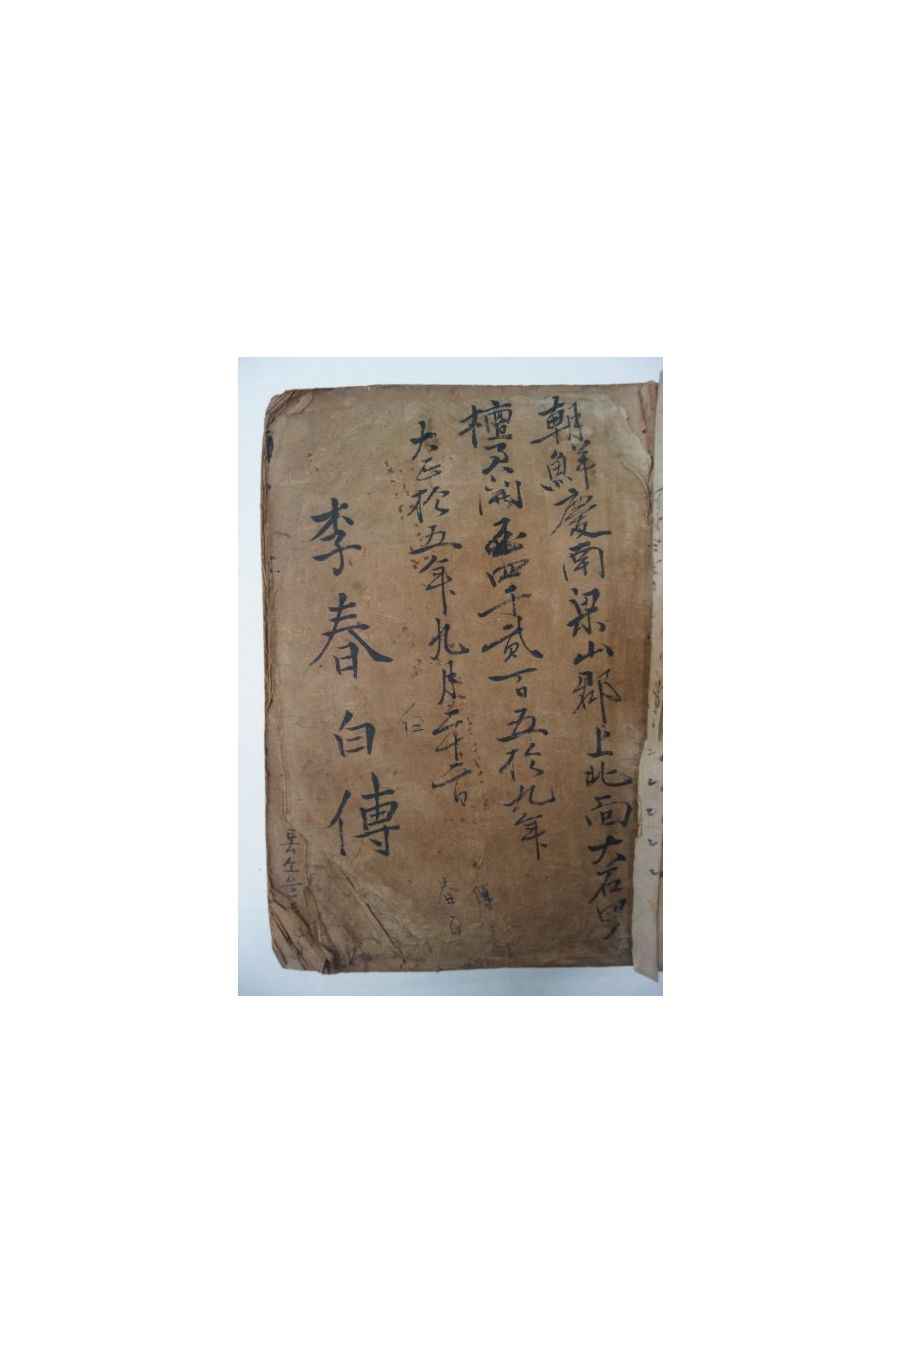 朝鮮慶南梁山郡上北面大石里
檀君開國四千貳百五拾九年
大正拾五年九月二十二日
仁
李春白傳
傳
春白
통소을